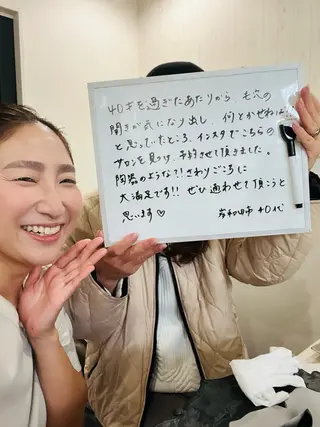 40才を過ぎたあたりから、毛穴の
開きが気になり出し、何とかせねば
と思っていたところ、インスタでこちらの
サロンを見つけ、予約させて頂きました。
陶器のような?!さわりごこちに
大満足です!!ぜひ通わせて頂こうと
思います♡
岸和田市 40代